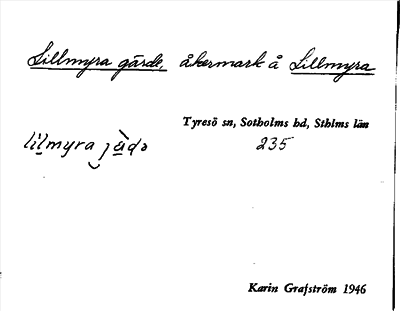 Lillmyra gärde, åkermark å Lillmyra
Tyresö sn, Sotholms hd, Sthlms län
lilmyra jàdə
235
Karin Grafström 1946